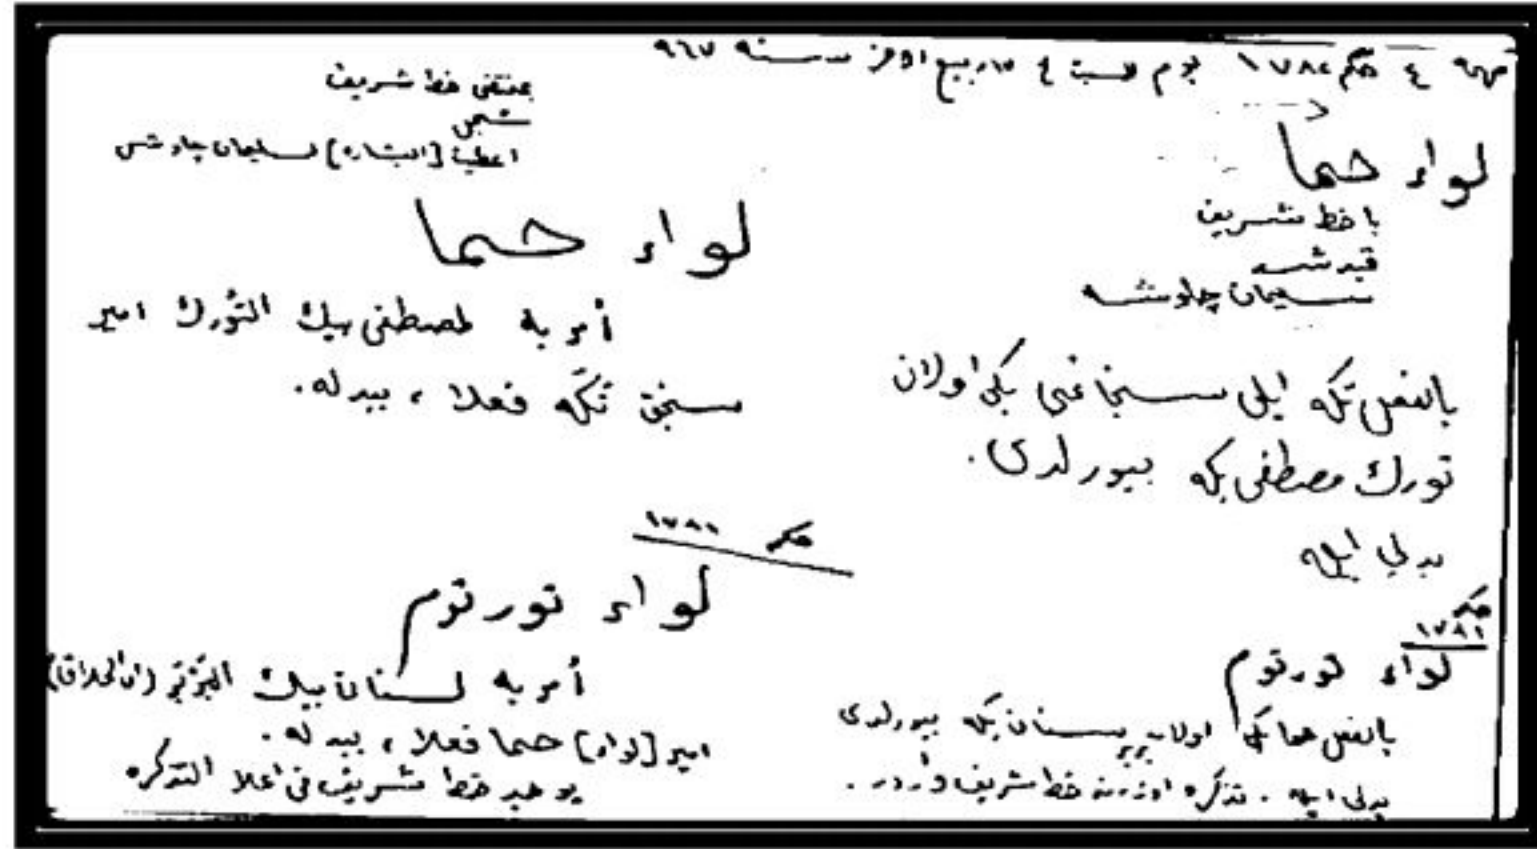 مهمه ٤ حكم ١٧٨٢ يوم السبت ٤ ربيع اوخر سنه ٩٦٧
لواء حما
با خط شريف
قيد شد
سليمان چاوشه
بالفعل تكه ايلى سنجاغى بكى اولان
تورك مصطفى بكه بيورلدى.
بدلي ايله
حكم ١٧٨١
لواء تورتوم
بالفعل حما بكى اولان سنان بكه بيورلدى
بدلى ايله. تذكره اوزرنه خط شريف واردر.
بمقتضى خط شريف
سجل
اعطيت [البشاره] لسليمان چاوش
لواء حما
أمر به لمصطفى بيك التورك امير
سنجق تكّه فعلا، ببدله.
حكم ١٧٨١
لواء تورتوم
أمر به لسنان بيك
امير [لواء] حما فعلا، ببدله.
يوجد خط شريف في اعلا التذكره